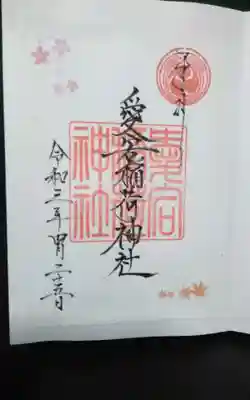 愛宕稲荷神社
令和三年四月二十五日
神社